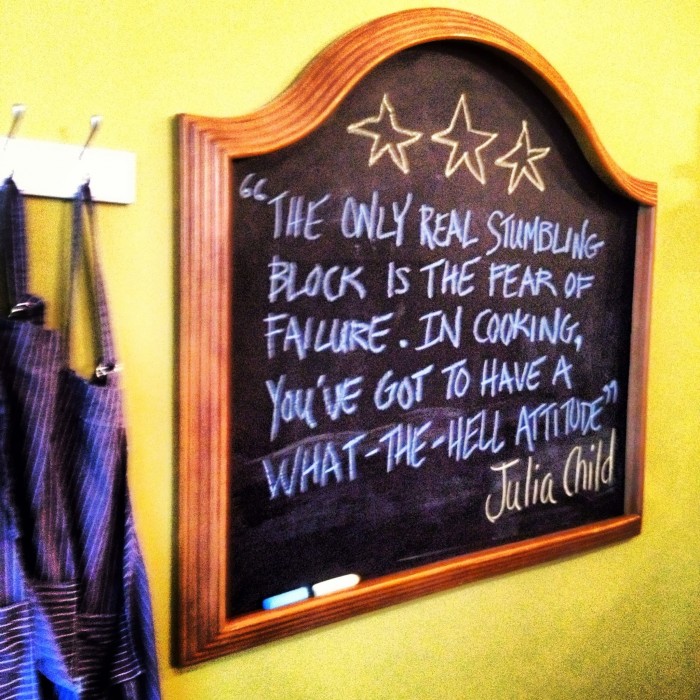 “THE ONLY REAL STUMBLING
BLOCK IS THE FEAR OF
FAILURE. IN COOKING,
YOU'VE GOT TO HAVE A
WHAT-THE-HELL ATTITUDE”
Julia Child